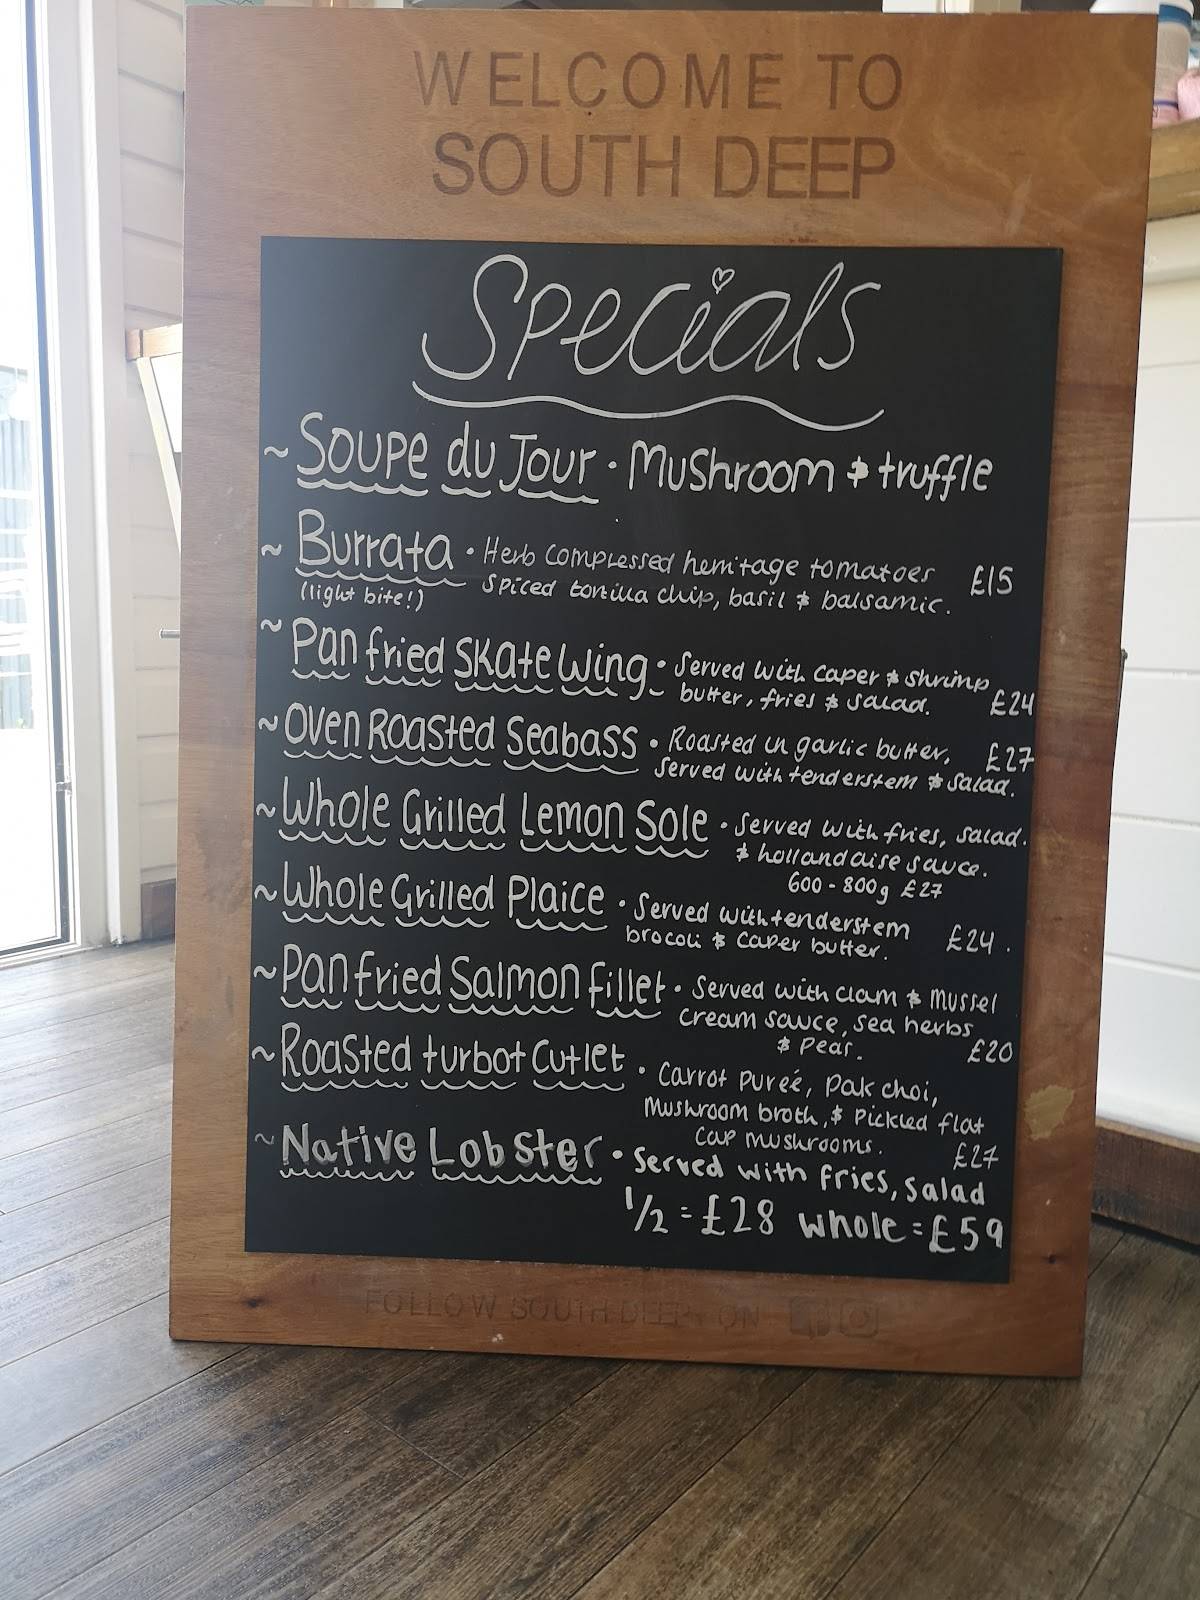 WELCOME TO
SOUTH DEEP
Specials
~ Soupe du Jour · Mushroom & truffle
~ Burrata · Herb compressed heritage tomatoes £15
(light bite!) spiced tortilla chip, basil & balsamic.
~ Pan fried Skate Wing · Served with caper & shrimp
butter, fries & salad. £24
~ Oven Roasted Seabass · Roasted in garlic butter, £27
served with tenderstem & salad.
~ Whole Grilled Lemon Sole · Served with fries, salad.
& hollandaise sauce.
600 - 800g £27
~ Whole Grilled Plaice · Served with tenderstem £24.
brocoli & caper butter.
~ Pan fried Salmon fillet · Served with clam & mussel
cream sauce, sea herbs
& peas. £20
~ Roasted turbot Cutlet · Carrot pureé, pak choi,
Mushroom broth, & pickled flat
cap mushrooms. £27
~ Native Lobster · Served with fries, salad
1/2 = £28 whole = £59
FOLLOW SOUTH DEEP ON